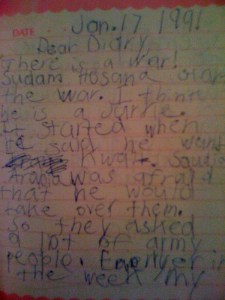 DATE Jan. 17 1991
Dear Diary,
There is a war!
Sudam Hosana
the war. I think
he is a
It started when
he said he want
Kwait. Saudie
Arabia was afraid
that he would
take over them.
So they asked
a lot of army
people.
the week my